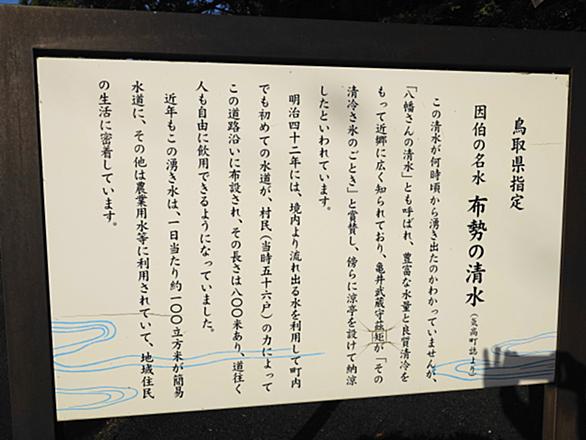 鳥取県指定
因伯の名水 布勢の清水
(気高町誌より)
この清水が何時頃から湧き出たのかわかっていませんが、
「八幡さんの清水」とも呼ばれ、豊富な水量と良質清冷を
もって近郷に広く知られており、亀井武蔵守茲矩が「その
清冷さ氷のごとき」と賞賛し、傍らに涼亭を設けて納涼
したといわれています。
明治四十二年には、境内より流れ出る水を利用して町内
でも初めての水道が、村民(当時五十六戸)の力によって
この道路沿いに布設され、その長さは八〇〇米あり、道往く
人も自由に飲用できるようになっていました。
近年もこの湧き水は、一日当たり約一〇〇立方米が簡易
水道に、その他は農業用水等に利用されていて、地域住民
の生活に密着しています。